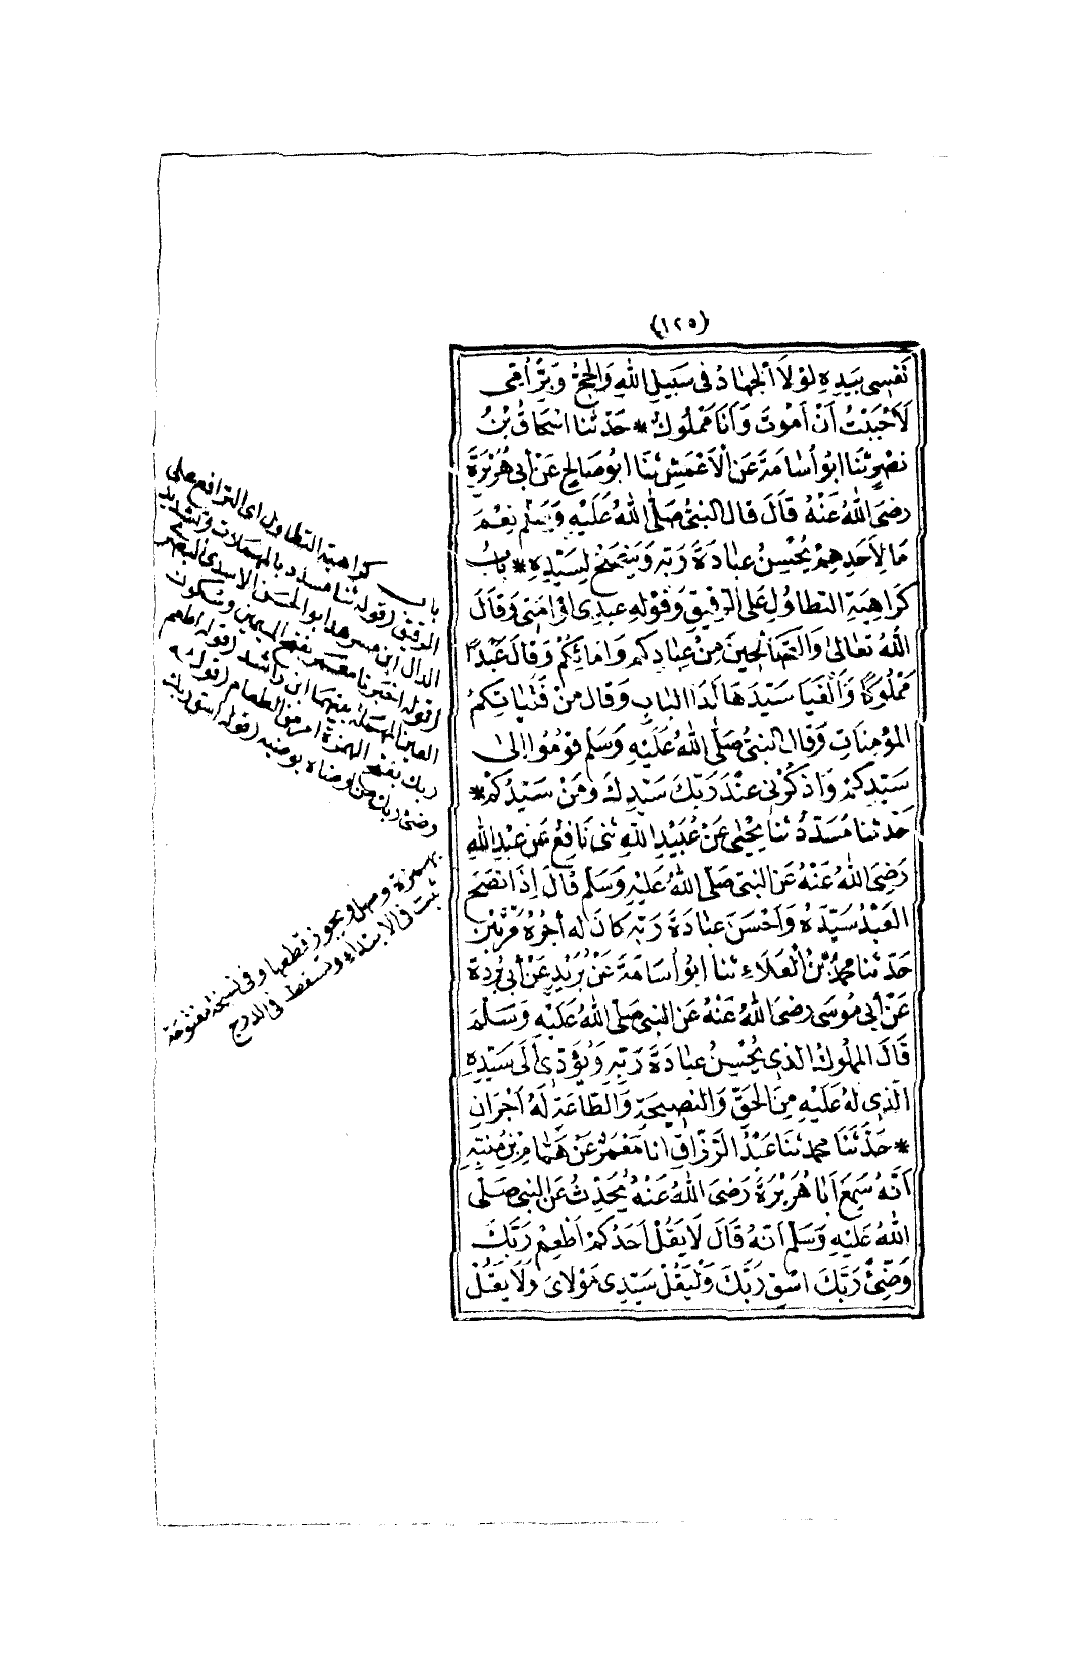 (١٢٥)
نَفْسِي بِيَدِهِ لَوْلَا الْجِهَادُ فِي سَبِيلِ اللهِ وَالْحَجُّ وَبِرُّ أُمِّي
لَأَحْبَبْتُ أَنْ أَمُوتَ وَأَنَا مَمْلُوكٌ * حَدَّثَنَا اسْحَاقُ بْنُ
نَصْرٍ ثَنَا ابُو أُسَامَةَ عَنْ الْأَعْمَشِ ثَنَا ابُو صَالِحٍ عَنْ أَبِي هُرَيْرَةَ
رَضِيَ اللهُ عَنْهُ قَالَ قَالَ النَّبِيُّ صَلَّى اللهُ عَلَيْهِ وَسَلَّمَ نِعْمَ
مَا لِأَحَدِهِمْ يُحْسِنُ عِبَادَةَ رَبِّهِ وَيَنْصَحُ لِسَيِّدِهِ * بَابُ
كَرَاهِيَةِ التَّطَاوُلِ عَلَى الرَّقِيقِ وَقَوْلِهِ عَبْدِي اوْ أَمَتِي وَقَالَ
اللهُ تَعَالَى وَالصَّالِحِينَ مِنْ عِبَادِكُمْ وَامَائِكُمْ وَقَالَ عَبْدًا
مَمْلُوكًا وَأَلْفَيَا سَيِّدَهَا لَدَا الْبَابِ وَقَالَ مِنْ فَتَيَاتِكُمُ
الْمُؤْمِنَاتِ وَقَالَ النَّبِيُّ صَلَّى اللهُ عَلَيْهِ وَسَلَّمَ قُومُوا إِلَى
سَيِّدِكُمْ وَاذْكُرْنِي عِنْدَ رَبِّكَ سَيِّدِكَ وَمَنْ سَيِّدُكُمْ *
حَدَّثَنَا مُسَدَّدٌ ثَنَا يَحْيَى عَنْ عُبَيْدِ اللهِ ثَنِي نَافِعٌ عَنْ عَبْدِ اللهِ
رَضِيَ اللهُ عَنْهُ عَنِ النَّبِيِّ صَلَّى اللهُ عَلَيْهِ وَسَلَّمَ قَالَ إِذَا نَصَحَ
الْعَبْدُ سَيِّدَهُ وَأَحْسَنَ عِبَادَةَ رَبِّهِ كَانَ لَهُ أَجْرُهُ مَرَّتَيْنِ
حَدَّثَنَا مُحَمَّدُ بْنُ الْعَلَاءِ ثَنَا ابُو أُسَامَةَ عَنْ بُرَيْدٍ عَنْ أَبِي بُرْدَةَ
عَنْ أَبِي مُوسَى رَضِيَ اللهُ عَنْهُ عَنِ النَّبِيِّ صَلَّى اللهُ عَلَيْهِ وَسَلَّمَ
قَالَ الْمَمْلُوكُ الَّذِي يُحْسِنُ عِبَادَةَ رَبِّهِ وَيُؤَدِّي إِلَى سَيِّدِهِ
الَّذِي لَهُ عَلَيْهِ مِنَ الْحَقِّ وَالنَّصِيحَةِ وَالطَّاعَةِ لَهُ أَجْرَانِ
* حَدَّثَنَا مُحَمَّدٌ ثَنَا عَبْدُ الرَّزَّاقِ انَا مَعْمَرٌ عَنْ هَمَّامِ بْنِ مُنَبِّهٍ
أَنَّهُ سَمِعَ أَبَا هُرَيْرَةَ رَضِيَ اللهُ عَنْهُ يُحَدِّثُ عَنِ النَّبِيِّ صَلَّى
اللهُ عَلَيْهِ وَسَلَّمَ انَّهُ قَالَ لَا يَقُلْ أَحَدُكُمْ أَطْعِمْ رَبَّكَ
وَضِّئْ رَبَّكَ اسْقِ رَبَّكَ وَلْيَقُلْ سَيِّدِي مَوْلَايَ وَلَا يَقُلْ
باب كراهية التطاول اى الترافع على
الرقيق (قوله ثنا مسدد بالمهملات وتشديد
الدال ابن مسرهد ابو الحسن الاسدى البصرى
(قوله اخبرنا معمر بفتح الميمين وسكون
العين المهملة بينهما ابن راشد (قوله اطعم
ربك بفتح الهمزة امر من الطعام (قوله
وضئ ربك من وضاه يوضيه (قوله اسق ربك
بهمزة وصل ويجوز قطعها وفى نسخة مفتوحة
ثبت فى الابتداء وتسقط فى الدرج